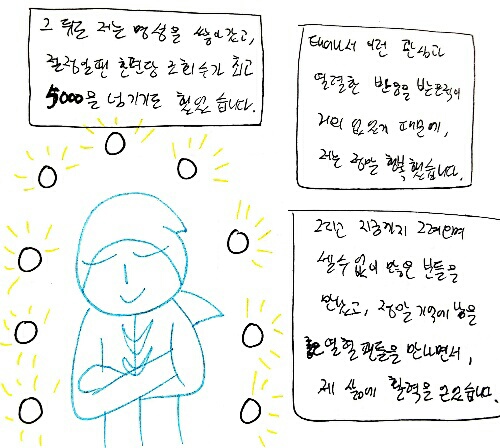 그 뒤로 저는 명성을 쌓아갔고,
절정일땐 한편당 조회수가 최고
5000을 넘기기도 했었습니다.
태어나서 이런 관심과
열렬한 반응을 받는적이
거의 없었기 때문에,
저는 정말 행복했습니다.
그리고 지금까지 그려오며
셀수 없이 많은 분들을
만났고, 정말 기억에 남을
열혈팬들을 만나면서,
제 삶에 활력을 얻었습니다.